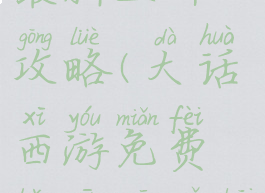 gōng lüè dà huà
攻略(大话
xī yóu miǎn fèi
西游免费